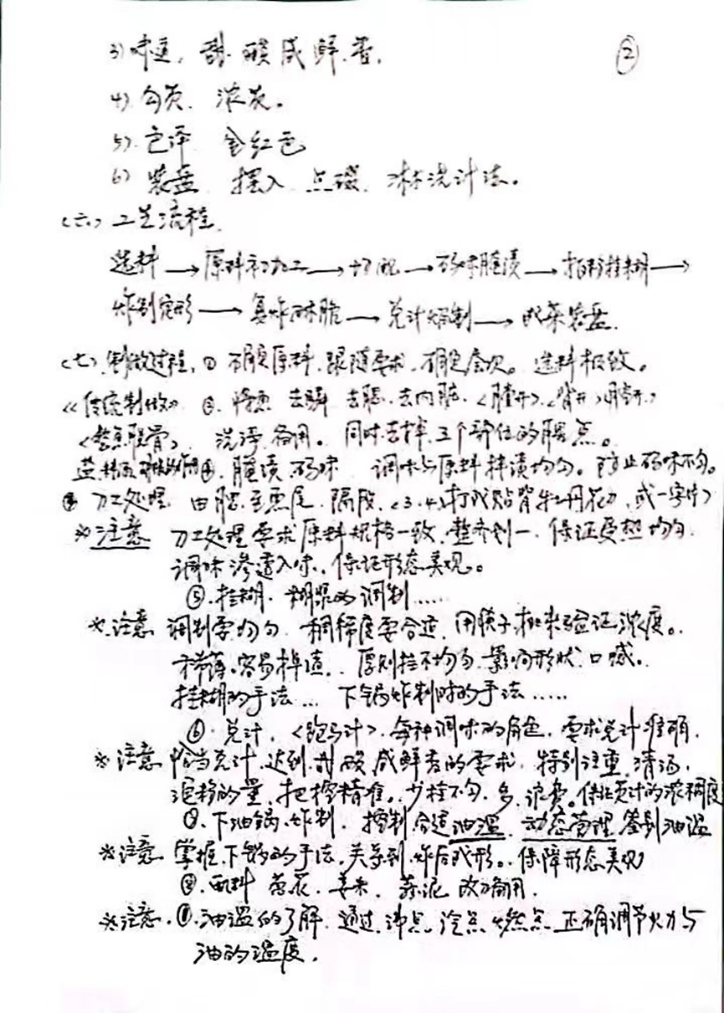 3) 味道, 甜. 酸咸鲜. 香.
②
4) 勾芡. 浓芡。
5) 色泽 金红色
6) 装盘 摆入 点缀. 淋浇汁法。
(六) 工艺流程.
选料 → 原料初加工 → 切配 → 码味腌渍 → 拍粉挂糊 →
炸制定形 → 复炸酥脆 → 兑汁熘制 → 成菜装盘.
(七) 制做过程, ① 原料. 跟随要求. 确定层次。选料极致。
《传统制做》 ②. 去鳞 去腮. 去内脏. <腹开>. <背开>
<整鱼脱骨>. 洗净 备用。同时去掉 三个部位的腥点。
③. 腌渍 码味 调味与原料拌渍均匀. 防止码味不匀。
④ 刀工处理. 由腮至鱼尾. 隔 <3.4> 打成牡丹花刀. 或一字刀
※注意 刀工处理要求原料规格一致. 整齐划一. 保证受热均匀.
调味渗透入味. 保证形态美观。
⑤. 挂糊. 糊浆的调制……
※注意 调制要均匀 稠稀度要合适. 用筷子挑来验证浓度。
稀薄. 容易掉渣. 厚则挂不均匀. 影响形状. 口感.
挂糊的手法… 下锅炸制时的手法……
⑥. 兑汁. <跑马汁>. 每种调味的角色. 要求兑汁准确.
※注意 恰当兑汁. 达到 甜酸咸鲜香的要求. 特别注重 清汤.
淀粉的量. 把控精准. 少挂不匀. 多. 浪费。保证芡汁的浓稠度
⑦. 下油锅. 炸制. 控制合适油温. 动态管理 鉴别油温
※注意 掌握下锅的手法. 关系到 炸后成形. 保障形态美观
⑧. 配料 葱花. 姜米. 蒜泥 改刀备用.
※注意. ① 油温的了解. 通过. 沸点. 冷点. 燃点 正确调节火力与
油的温度.